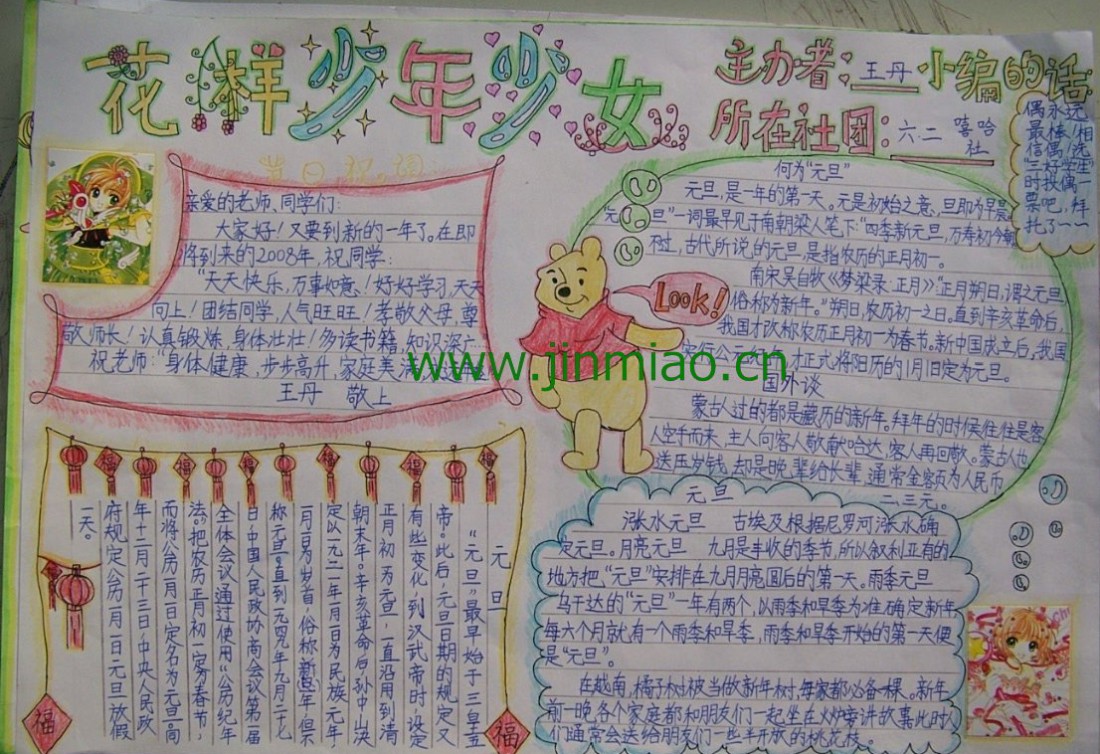 花样少年少女
主办者：王丹
所在社团：六二 嘻哈社
小编的话
偶永远
最棒！相
信偶！选
"三好学生"
时投偶一
票吧，拜
托了~~
节日祝词：
亲爱的老师、同学们：
大家好！又要到新的一年了。在即
将到来的2008年，祝同学：
"天天快乐，万事如意！好好学习，天天
向上！团结同学，人气旺旺！孝敬父母，尊
敬师长！认真锻炼，身体壮壮！多读书籍，知识深广
祝老师："身体健康，步步高升，家庭美满
王丹 敬上
何为"元旦"
元旦，是一年的第一天。元是初始之意，旦即为早晨
"元旦"一词最早见于南朝梁人笔下："四季新元旦，万寿初今朝
不过，古代所说的元旦，是指农历的正月初一。
南宋吴自牧《梦粱录·正月》："正月朔日，谓之元旦
俗称为新年。"朔日，农历初一之日。直到辛亥革命后，
我国才改称农历正月初一为春节。新中国成立后，我国
才正式将阳历的1月1日定为元旦。
国外谈
蒙古人过的都是藏历的新年。拜年的时候往往是客
人空手而来，主人向客人敬献哈达，客人再回敬。蒙古人也
送压岁钱，却是晚辈给长辈，通常金客页为人民币
二、三元。
Look!
www.jinmiao.cn
元旦
"元旦"最早始于三皇五
帝。此后，元旦日期的规定又
有些变化，到汉武帝时设定
正月初一为元旦，一直沿用到清
朝末年。辛亥革命后，孙中山决
定以一九一二年一月一日为民族元年
一月一日为岁首，俗称新年，但不
称元旦。直到一九四九年九月二十七
日，中国人民政协商会议第一届
全体会议通过使用"公历纪年
法"，把农历正月初一定为春节，
而将公历一月一日定名为元旦。同
年十二月二十三日，中央人民政
府规定公历一月一日元旦放假
一天。
福
福
元旦
涨水元旦 古埃及根据尼罗河涨水确
定元旦。月亮元旦 九月是丰收的季节，所以叙利亚有的
地方把"元旦"安排在九月月亮圆后的第一天。雨季元旦
乌干达的"元旦"一年有两个，以雨季和旱季为准确定新年
每六个月就有一个雨季和旱季，雨季和旱季开始的第一天便
是"元旦"。
在越南，橘子树被当做新年树，每家都必备一棵。新年
前一晚各个家庭都和朋友们一起坐在火炉旁讲故事此时人
们通常会送给朋友们一些半开放的桃花枝。